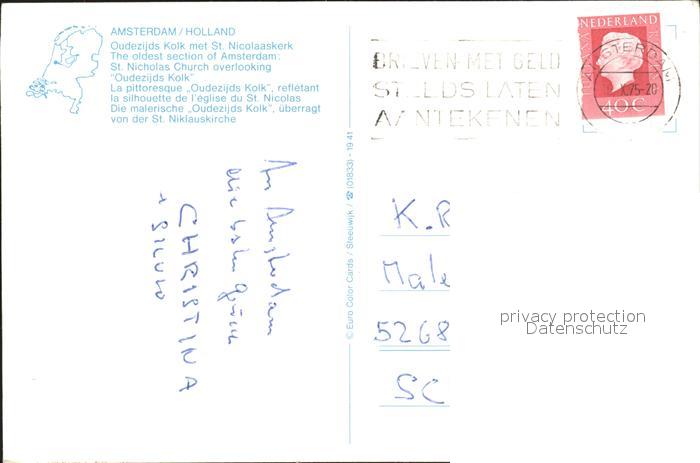 AMSTERDAM / HOLLAND
Oudezijds Kolk met St. Nicolaaskerk
The oldest section of Amsterdam:
St. Nicholas Church overlooking
"Oudezijds Kolk"
La pittoresque „Oudezijds Kolk", reflétant
la silhouette de l'église du St. Nicolas
Die malerische „Oudezijds Kolk", überragt
von der St. Niklauskirche
BRIEVEN MET GELD
STEEDS LATEN
AANTEKENEN
NEDERLAND
40 C
AMSTERDAM
X.75-20
Aus Amsterdam
die besten Grüsse
CHRISTINA
+ SILVIO
© Euro Color Cards / Sleeuwijk / ☎ (01833) - 19 41
K. R
Male
5268
SC
privacy protection
Datenschutz